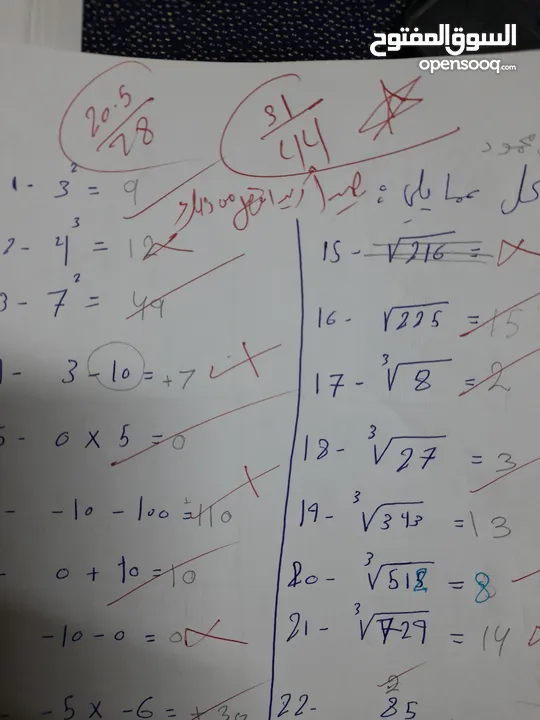 السوق المفتوح
opensooq.com
20.5/28
31/44
كل مما يلي :
1- 3² = 9
2- 4³ = 12
3- 7² = 49
3 - 10 = +7
5- 0 × 5 = 0
-10 - 100 = +110
0 + 10 = 10
-10 - 0 = 0
-5 × -6 = +30
15- √216 =
16- √225 = 15
17- ³√8 = 2
18- ³√27 = 3
19- ³√343 = 13
20- ³√512 = 8
21- ³√729 = 14
22- 85